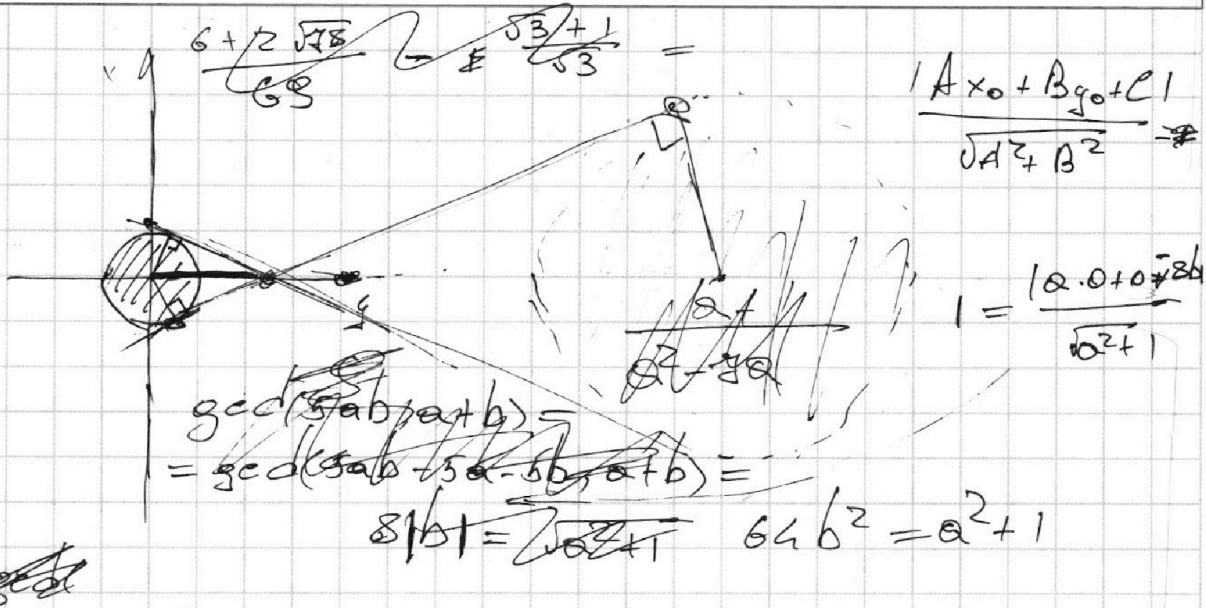 6 + 12 √78 / 69 - √3 + 1 / √3 =
|Ax₀ + By₀ + C| / √A² + B² =
1 = |a·0 + 0 + 8b| / √a² + 1
a + / a² - 7a
gcd(5ab, a+b) =
= gcd(5ab - 5a - 5b, a+b) =
8|b| = √a²+1 64b² = a² + 1
gcd